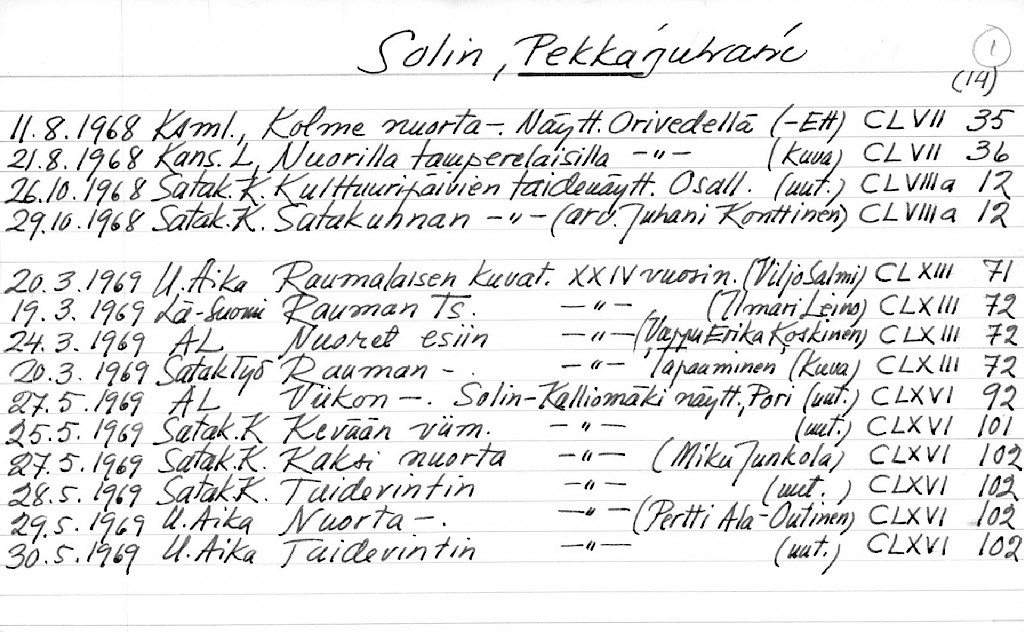 Solin, Pekka Juhani 1
(14)
11.8.1968 Ksml., Kolme nuorta -. Näytt. Orivedellä (-Ett) CLVII 35
21.8.1968 Kans. L, Nuorilla tamperelaisilla -"- (Kuva) CLVII 36
26.10.1968 Satak.K. Kulttuuripäivien taidenäytt. Osall. (uut.) CLVIIIa 12
29.10.1968 Satak.K. Satakunnan -"- (arv. Juhani Konttinen) CLVIIIa 12
20.3.1969 U.Aika Raumalaisen kuvat. XXIV vuosin. (Viljo Salmi) CLXIII 71
19.3.1969 Lä-Suomi Rauman Ts. -"- (Ilmari Leino) CLXIII 72
24.3.1969 AL Nuoret esiin -"- (Vappu Erika Koskinen) CLXIII 72
20.3.1969 SatakTyö Rauman -. -"- Tapaaminen (Kuva) CLXIII 72
27.5.1969 AL Viikon -. Solin-Kalliomäki näytt, Pori (uut.) CLXVI 92
25.5.1969 Satak.K Kevään viim. -"- (uut.) CLXVI 101
27.5.1969 Satak.K. Kaksi nuorta -"- (Miku Junkola) CLXVI 102
28.5.1969 Satak.K. Taidevintin -"- (uut.) CLXVI 102
29.5.1969 U.Aika Nuorta -. -"- (Pertti Ala-Outinen) CLXVI 102
30.5.1969 U.Aika Taidevintin -"- (uut.) CLXVI 102